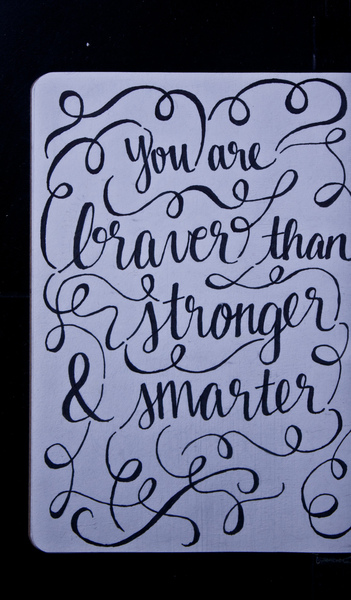 you are
braver than
stronger
& smarter